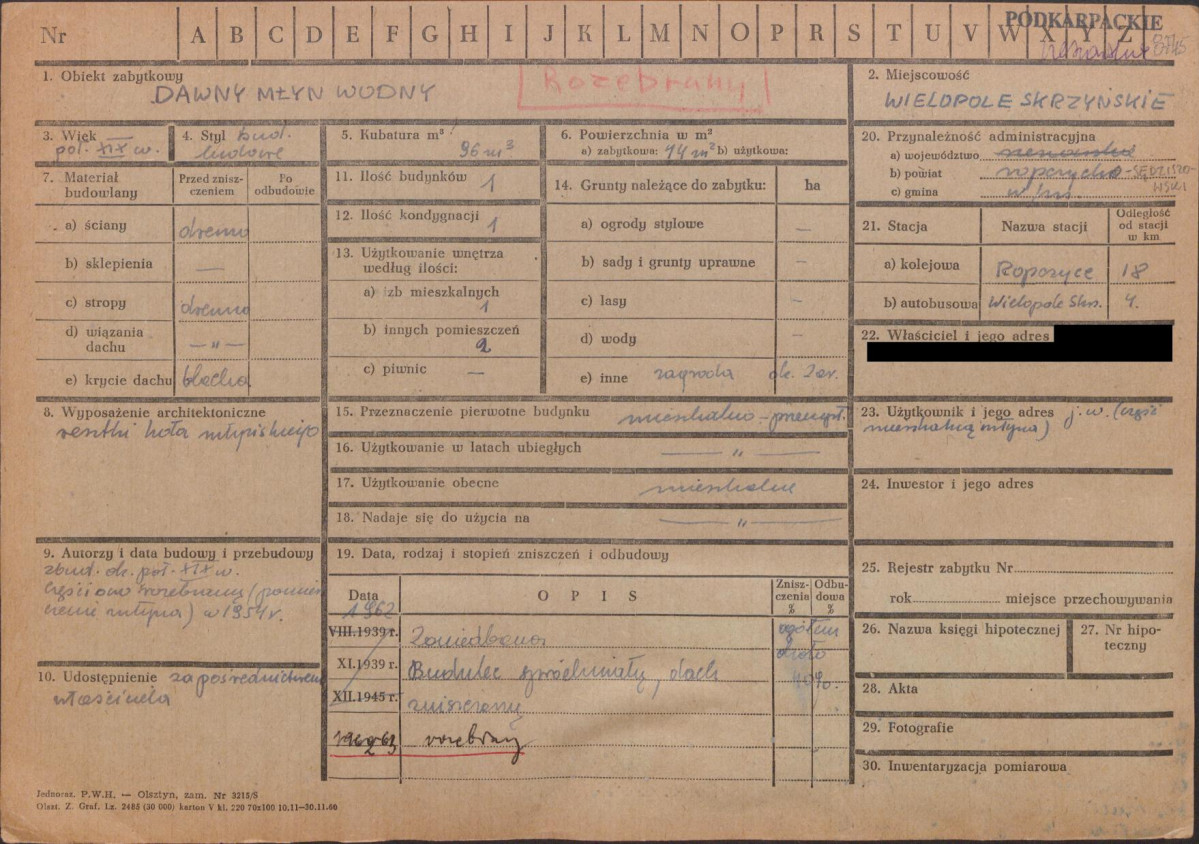 Nr A B C D E F G H I J K L M N O P R S T U V W X Y Z
PODKARPACKIE
1. Obiekt zabytkowy
DAWNY MŁYN WODNY
Rozebrany
2. Miejscowość
WIELOPOLE SKRZYŃSKIE
3. Wiek
poł. XIX w.
4. Styl bud.
ludowe
5. Kubatura m³
96 m³
6. Powierzchnia w m²
a) zabytkowa: 44 m² b) użytkowa:
20. Przynależność administracyjna
a) województwo rzeszowskie
b) powiat ropczycko-SĘDZISZOWSKI
c) gmina w/m.
7. Materiał budowlany
Przed zniszczeniem
Po odbudowie
a) ściany drewno
b) sklepienia —
c) stropy drewno
d) wiązania dachu —„—
e) krycie dachu blacha
11. Ilość budynków 1
12. Ilość kondygnacji 1
13. Użytkowanie wnętrza według ilości:
a) izb mieszkalnych 1
b) innych pomieszczeń 2
c) piwnic —
14. Grunty należące do zabytku: ha
a) ogrody stylowe —
b) sady i grunty uprawne —
c) lasy —
d) wody —
e) inne zagroda ok. 2 ar.
21. Stacja
Nazwa stacji
Odległość od stacji w km
a) kolejowa Ropczyce 18
b) autobusowa Wielopole Skrz. 4.
22. Właściciel i jego adres
8. Wyposażenie architektoniczne
resztki koła młyńskiego
15. Przeznaczenie pierwotne budynku mieszkalno-przemysł.
16. Użytkowanie w latach ubiegłych —„—
17. Użytkowanie obecne mieszkalne
18. Nadaje się do użycia na —„—
23. Użytkownik i jego adres j.w. (część
mieszkalną młyna)
24. Inwestor i jego adres
9. Autorzy i data budowy i przebudowy
zbud. ok. poł. XIX w.
częściowo rozebrany (pomiesz
czenie młyna) w 1954 r.
19. Data, rodzaj i stopień zniszczeń i odbudowy
Data
OPIS
Zniszczenia %
Odbudowa %
1962
VIII.1939 r. Zaniedbana ogółem
około
XI.1939 r. Budulec spróchniały, dach 40%.
XII.1945 r. zniszczony
1963 rozebrany
25. Rejestr zabytku Nr
rok miejsce przechowywania
26. Nazwa księgi hipotecznej
27. Nr hipoteczny
10. Udostępnienie za pośrednictwem
właściciela
28. Akta
29. Fotografie
30. Inwentaryzacja pomiarowa
Jednoraz. P.W.H. — Olsztyn, zam. Nr 3215/S
Olszt. Z. Graf. Lz. 2485 (30 000) karton V kl. 220 70x100 10.11—30.11.60